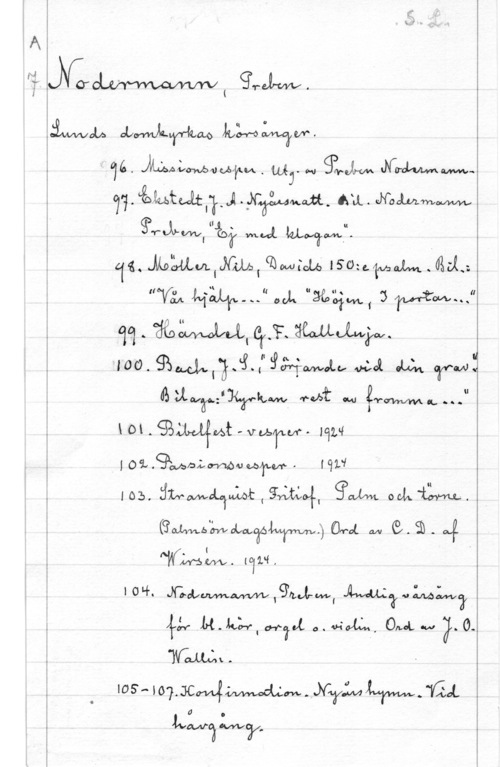 S. L.
A
7 Nodermann, Preben.
Lunds domkyrkas körsånger.
96. Missionsvesper. Utg. av Preben Nodermann.
97. Ekstedt, J. A. Nyårsnatt. Bil. Nodermann
Preben, "Ej med klagan".
98. Möller, Nils, Davids 150:e psalm. Bil.:
"Vår hjälp..." och "Höjen, I portar..."
99. Händel, G. F. Halleluja.
100. Bach, J. S., "Sörjande vid din grav."
Bilaga: "Kyrkan rest av fromma..."
101. Bibelfest-vesper. 1924
102. Passionsvesper. 1924
103. Strandquist, Fritiof, Palm och törne.
(Palmsöndagshymn.) Ord av C. D. af
Wirsén. 1924.
104. Nodermann, Preben, Andlig vårsång
för bl. kör, orgel o. violin. Ord av J. O.
Wallin.
105-107. Konfirmation. Nyårshymn. Vid
håvgång.